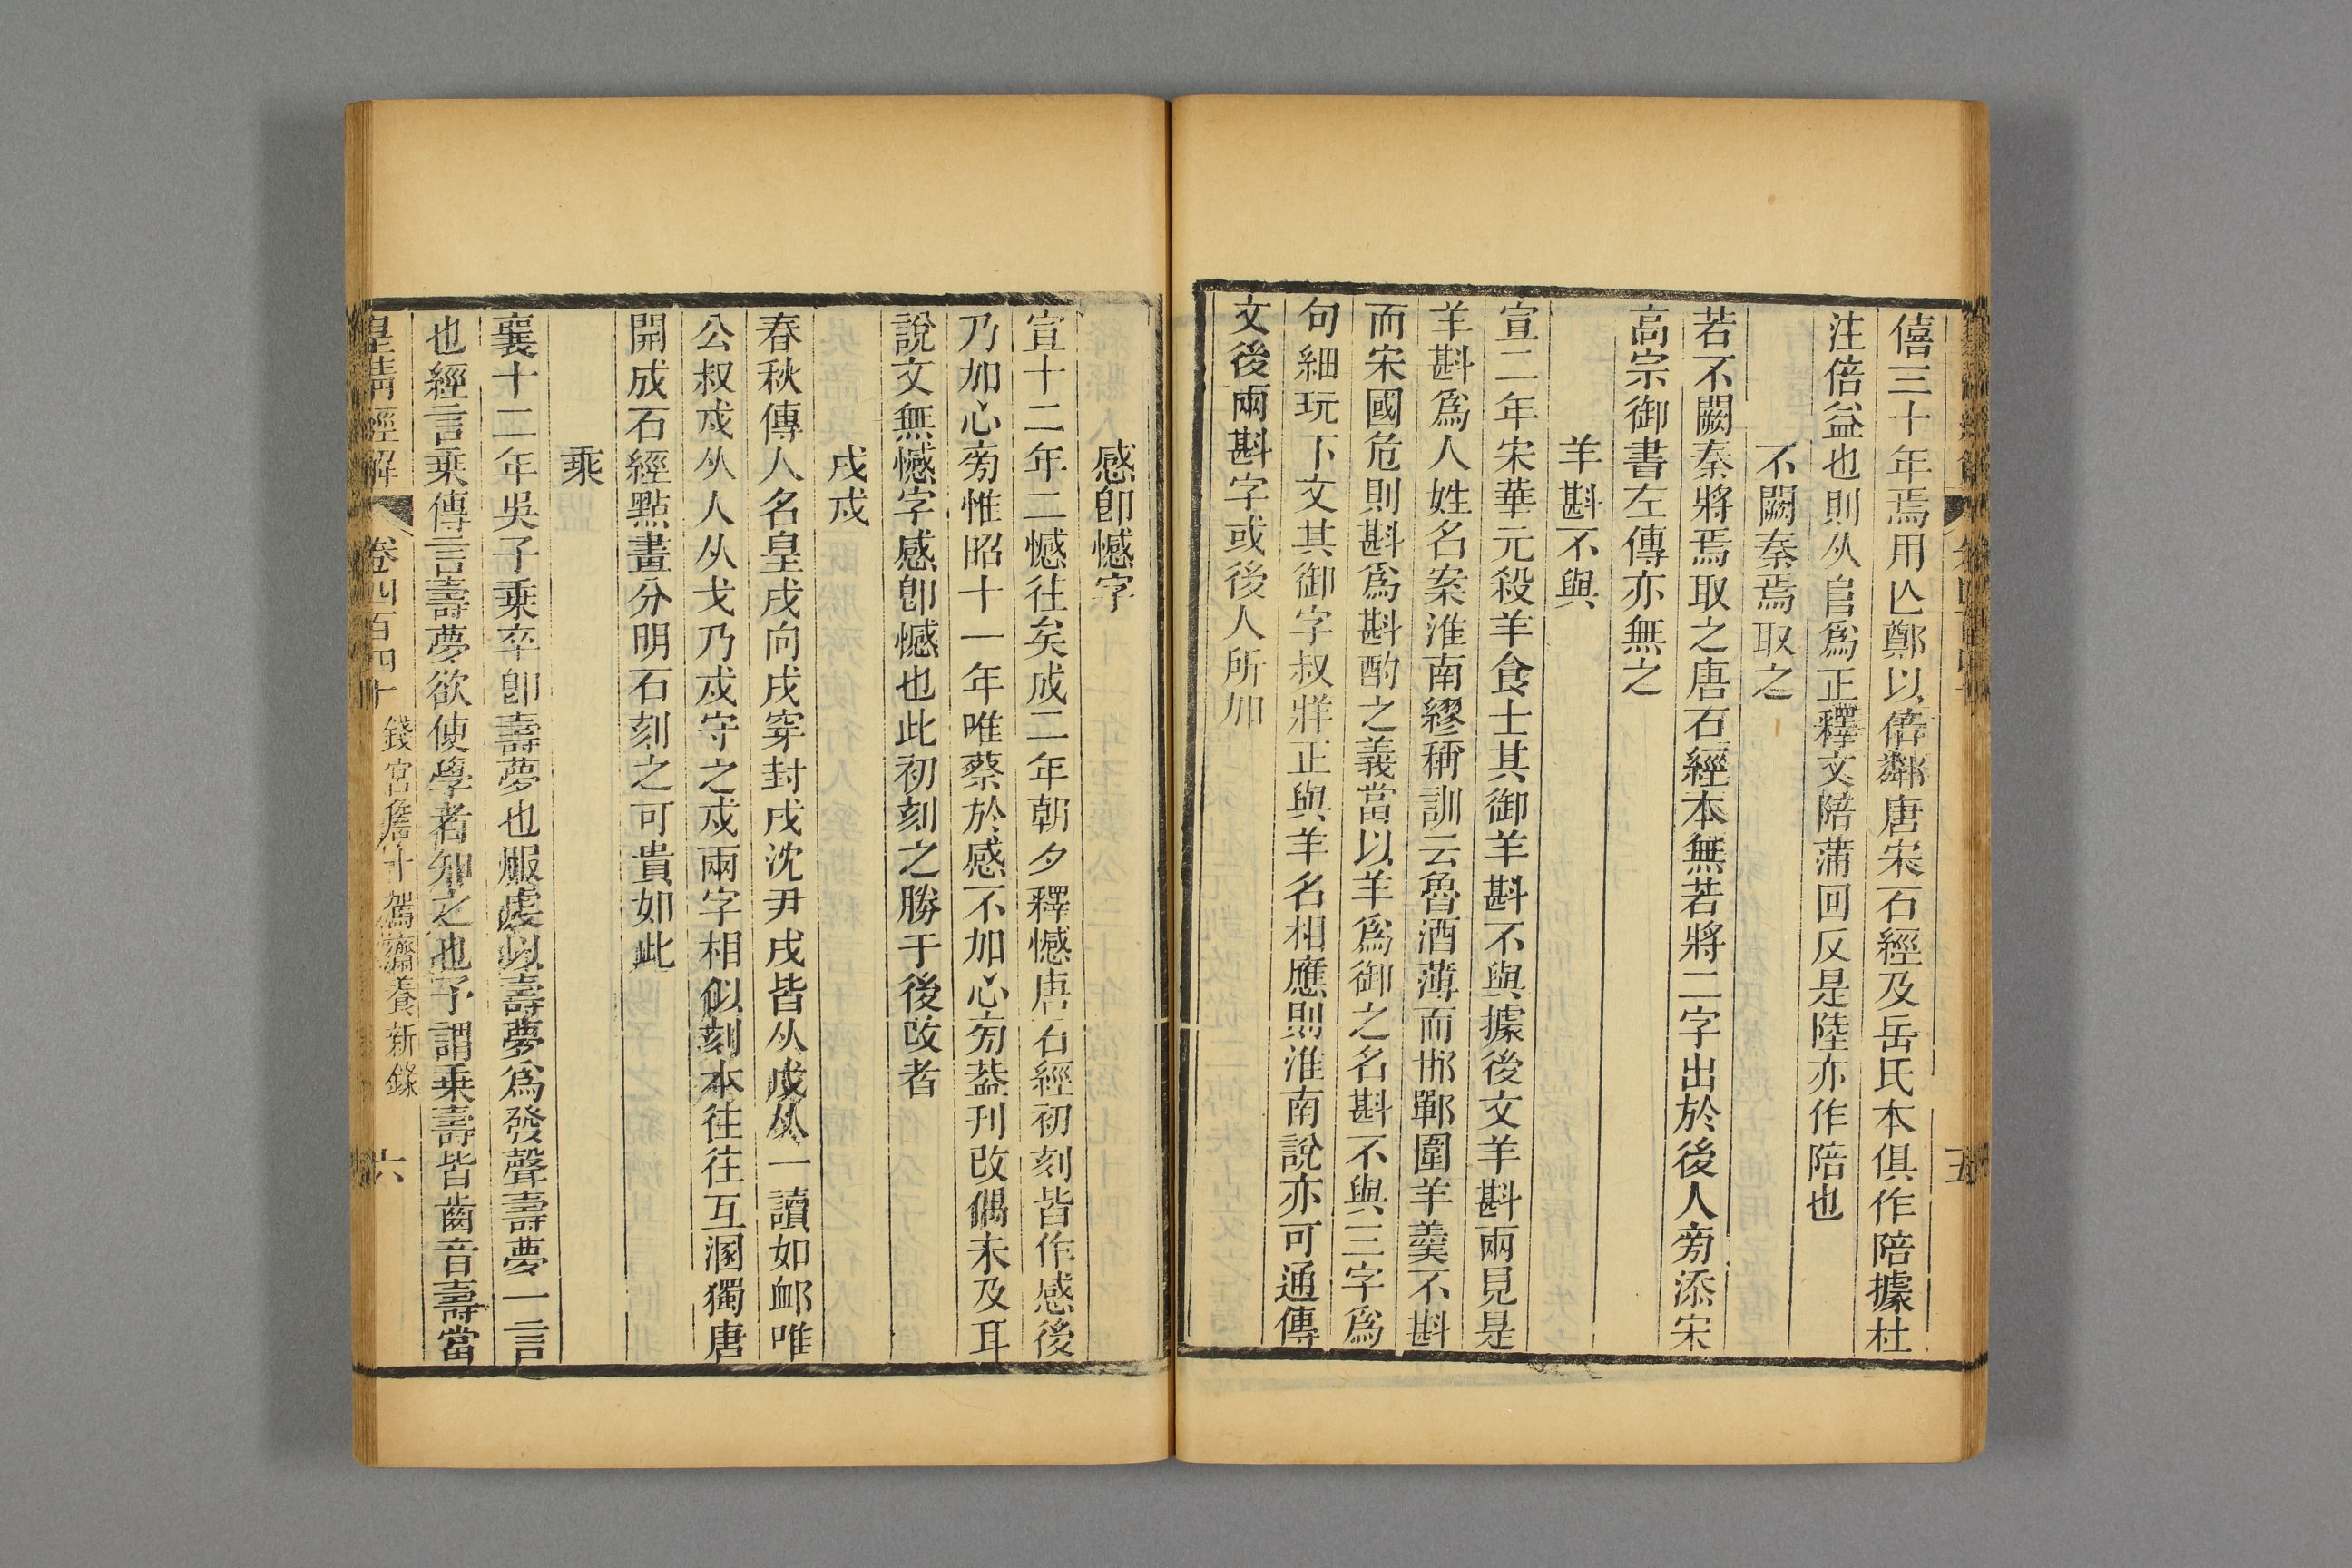 僖三十年焉用亾鄭以倍鄰唐宋石經及岳氏本俱作陪據杜
注倍益也則从𠂤爲正釋文陪蒲回反是陸亦作陪也
不闕秦焉取之
若不闕秦將焉取之唐石經本無若將二字出於後人旁添宋
高宗御書左傳亦無之
羊斟不與
宣二年宋華元殺羊食士其御羊斟不與據後文羊斟兩見是
羊斟爲人姓名案淮南繆稱訓云魯酒薄而邯鄲圍羊羹不斟
而宋國危則斟爲斟酌之義當以羊爲御之名斟不與三字爲
句細玩下文其御字叔牂正與羊名相應則淮南說亦可通傳
文後兩斟字或後人所加
五
感卽憾字
宣十二年二憾往矣成二年朝夕釋憾唐石經初刻皆作感後
乃加心旁惟昭十一年唯蔡於感不加心旁葢刊改偶未及耳
說文無憾字感卽憾也此初刻之勝于後改者
戌戍
春秋傳人名皇戌向戌穿封戌沈尹戌皆从戊从一讀如卹唯
公叔戍从人从戈乃戍守之戍兩字相似刻本往往互溷獨唐
開成石經點畫分明石刻之可貴如此
乘
襄十二年吳子乘卒卽壽夢也服虔以壽夢爲發聲壽夢一言
也經言乘傳言壽夢欲使學者知之也予謂乘壽皆齒音壽當
皇清經解 卷四百四十 錢宮詹十駕齋養新錄 六